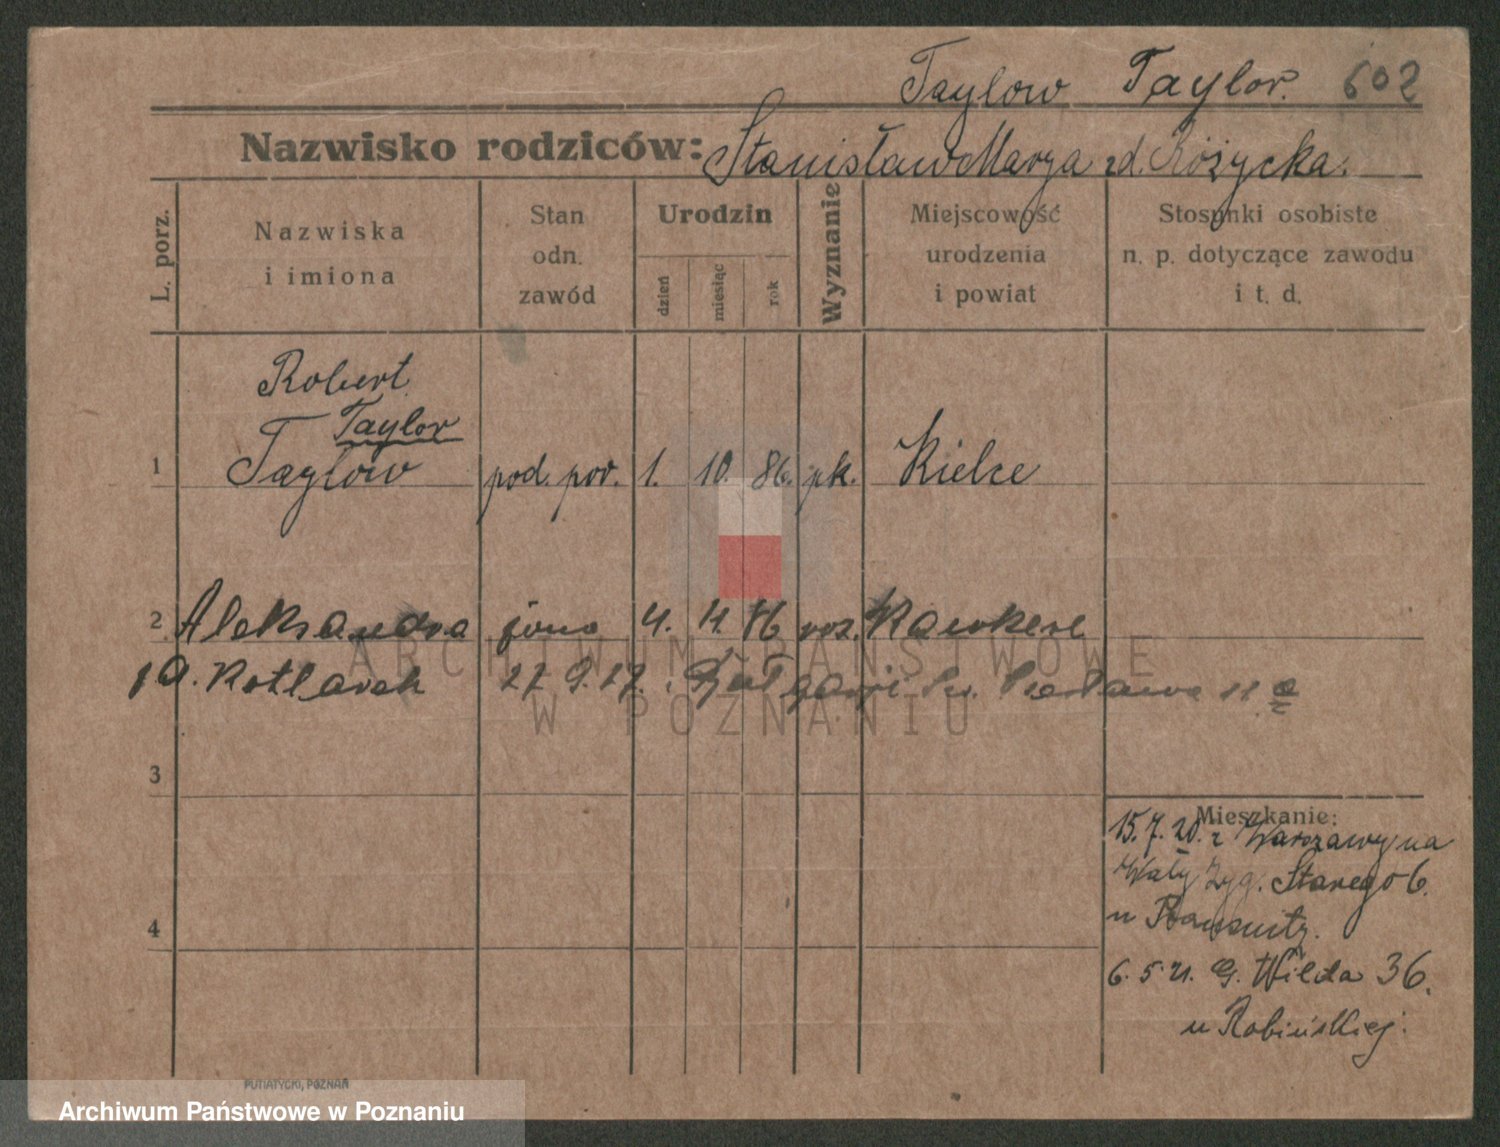 Taylow Taylor. 602
Nazwisko rodziców: Stanisław Marya zd. Różycka.
L. porz.
Nazwiska
i imiona
Stan
odn.
zawód
Urodzin
dzień
miesiąc
rok
Wyznanie
Miejscowość
urodzenia
i powiat
Stosunki osobiste
n. p. dotyczące zawodu
i t. d.
Robert
Taylor
1 Taylow pod. por. 1. 10. 86. rk. Kielce
2 Aleksandra żona 4. 11. 86
Kotlarek 27 9. 27. 11
ARCHIWUM PAŃSTWOWE
W POZNANIU
3
Mieszkanie:
15. 7. 20. z Warszawy na
Wały Zyg. Starego 6.
u
4
6. 5. 21. G. Wilda 36.
u Robińskiej.
PUTIATYCKI, POZNAŃ
Archiwum Państwowe w Poznaniu